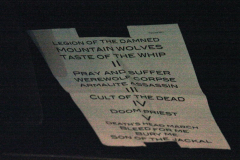 LEGION OF THE DAMNED
MOUNTAIN WOLVES
TASTE OF THE WHIP
II
PRAY AND SUFFER
WEREWOLF CORPSE
ARMALITE ASSASSIN
III
CULT OF THE DEAD
IV
DOOM PRIEST
V
DEATH'S HEAD MARCH
BLEED FOR ME
SON OF THE JACKAL